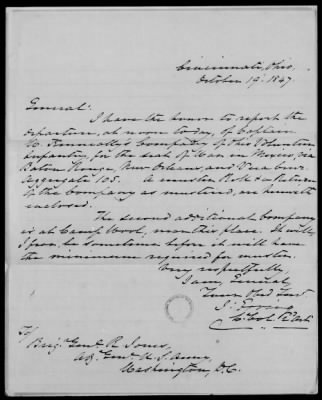 Cincinnati, Ohio,
October 19th 1847
General:
I have the honor to report the
departure, at noon today, of Captain
W. Kenneally's Company of Ohio Volunteer
Infantry, for the seat of War in Mexico, via
Baton Rouge, New Orleans, and Vera Cruz
aggregate 105. A muster Roll & a Return
of the Company as mustered, are herewith
enclosed.
The second additional company
is at Camp Wool, near this place. It will,
I fear, be sometime before it will have
the minimum required for muster.
Very respectfully,
I am, General,
Your Obd Servt
J. Erving
To/
Brig. Genl. R. Jones,
Adj. Genl. U. S. Army,
Washington, D.C.